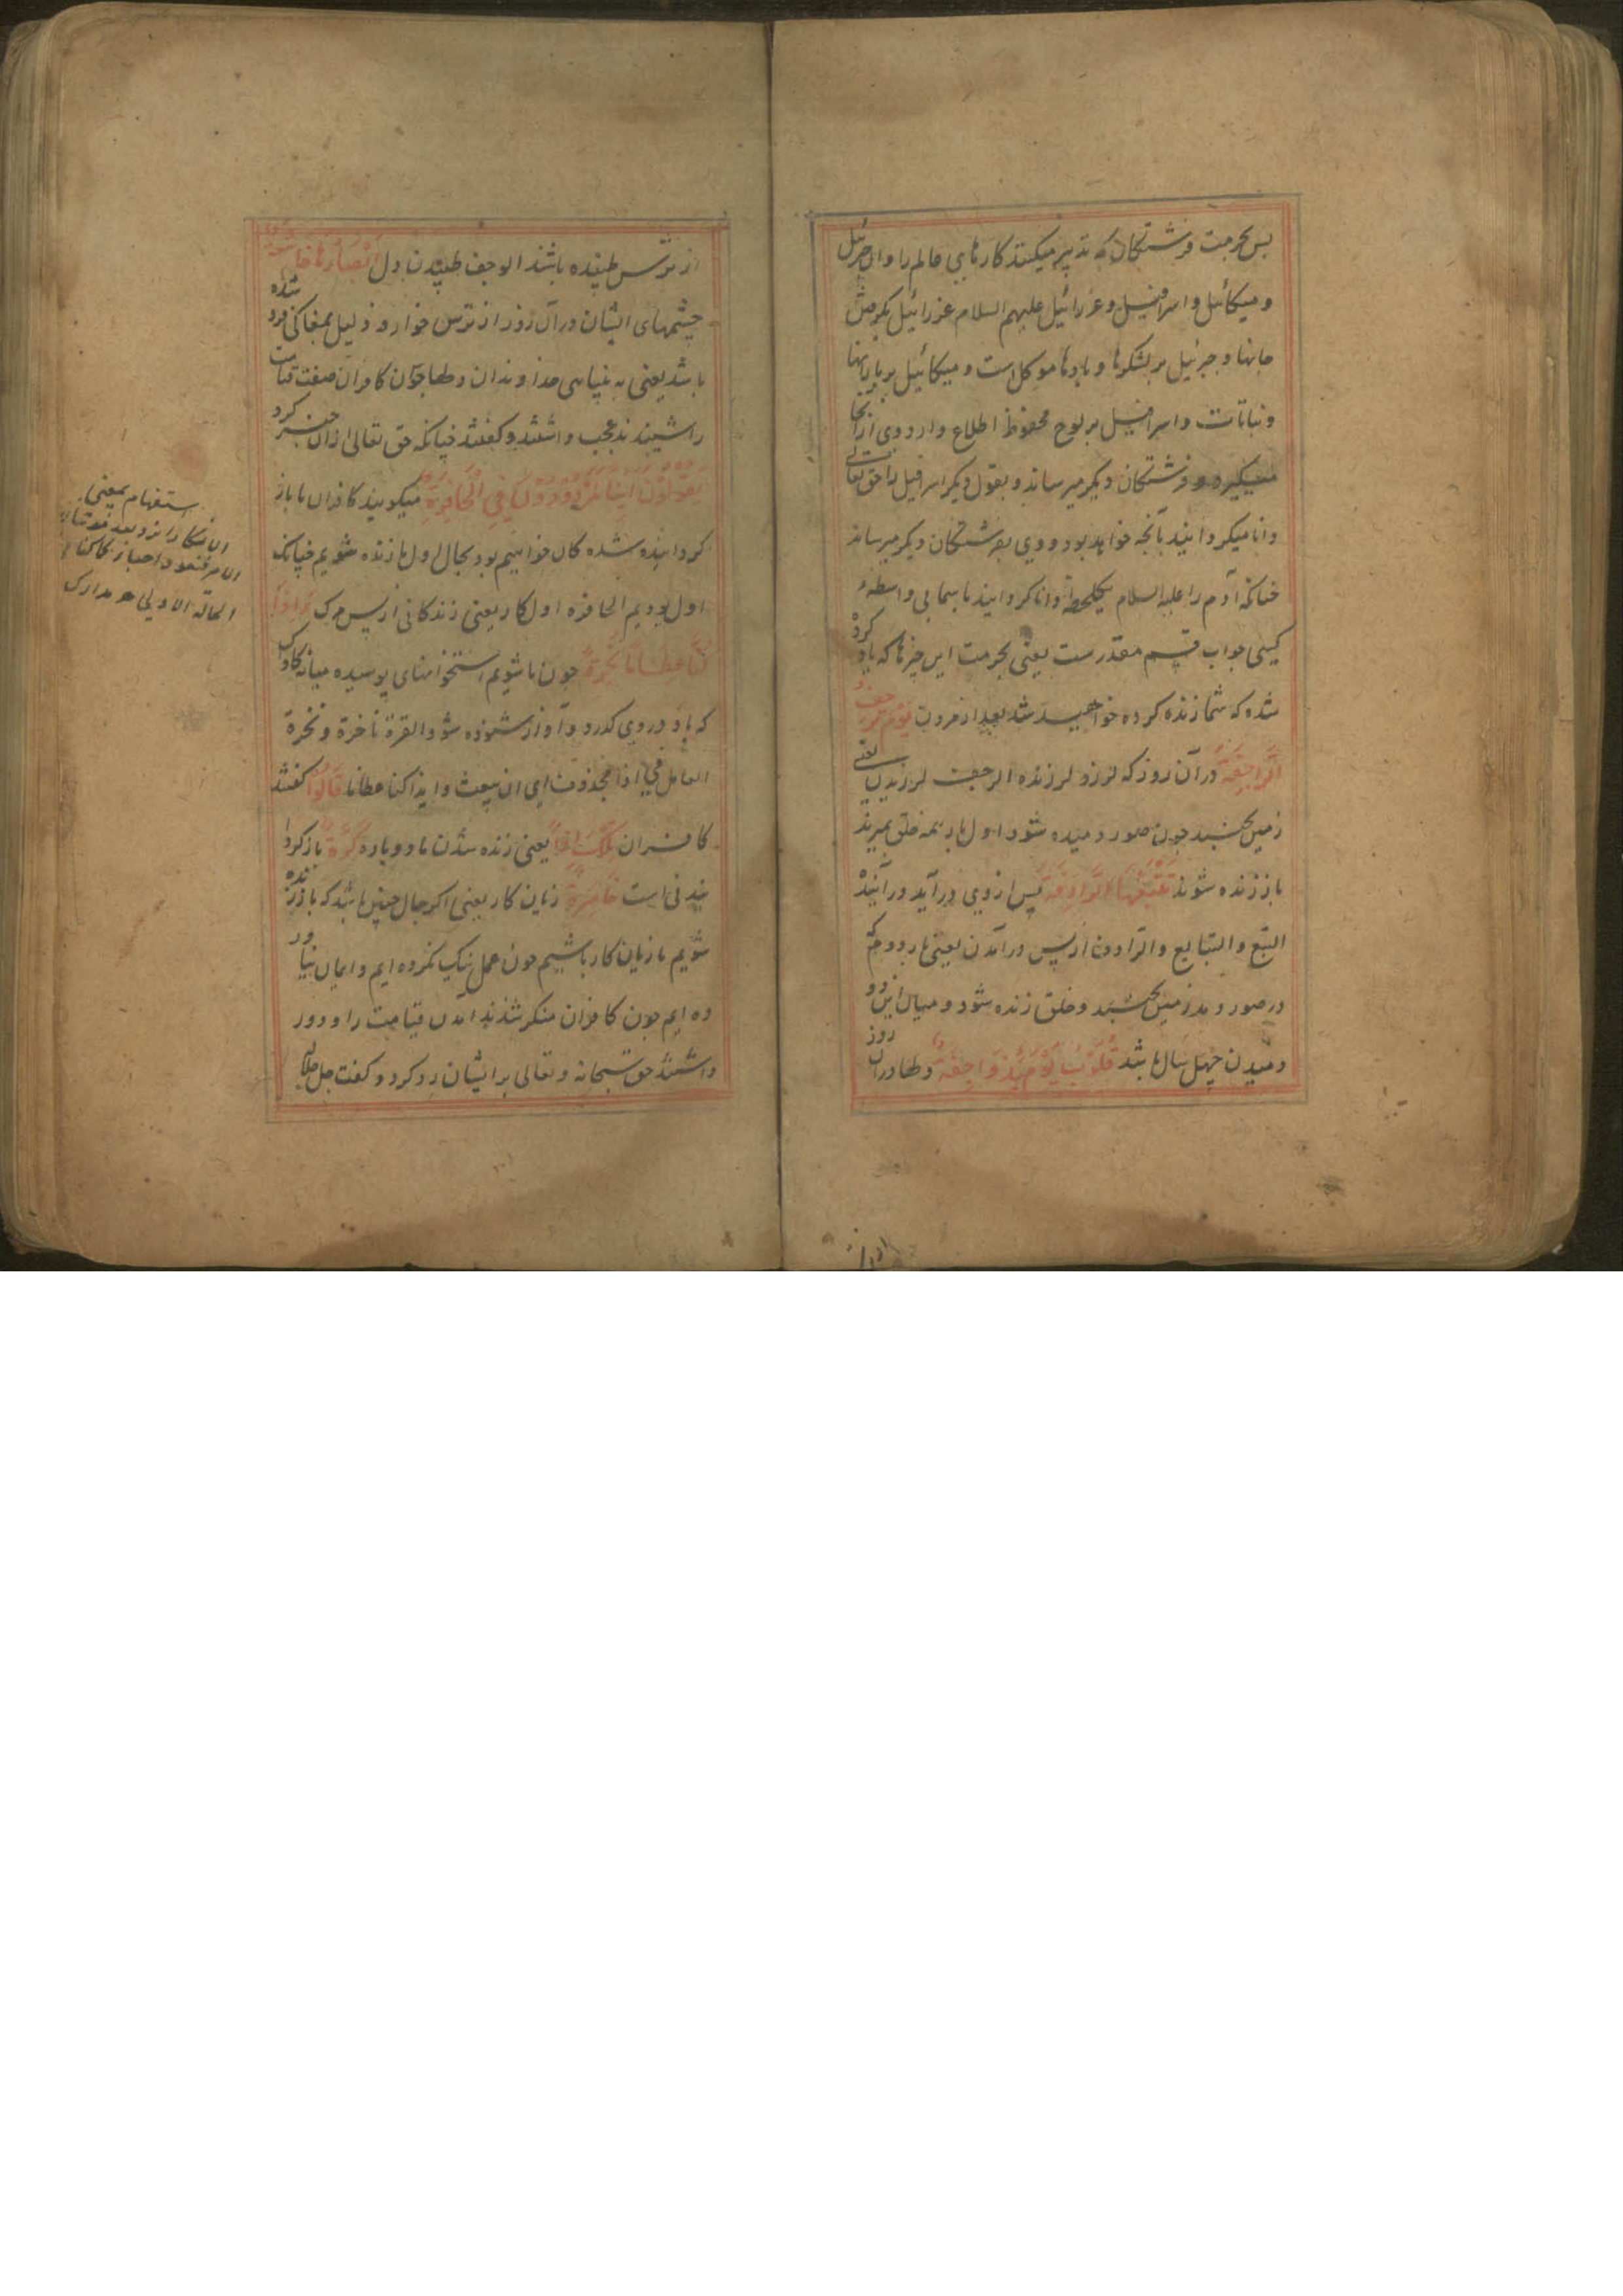 پس بحرمت فرشتگان که تدبیر میکنند کارهای عالم را و آن جبرئیل
و میکائیل و اسرافیل و عزرائیل علیهم السلام عزرائیل بر قبض
جانها و جبرئیل بر لشکرها و بادها موکل است و میکائیل بر بارانها
و نباتات و اسرافیل بر لوح محفوظ اطلاع دارد وی از آنجا
میگیرد و فرشتکان دیکر میرساند و بقول دیکر اسرافیل را حق تعالی
دانا میکرداند بآنچه خواهد بود و وی بفرشتکان دیکر میرساند
چنانکه آدم را علیه السلام بیکلحظه دانا کردانید باسما بی واسطهء
کسی جواب قسم مقدرست یعنی بحرمت این چیزها که یاد کرده
شده که شما زنده کرده خواهید شد بعد از مردن یَوْمَ تَرْجُفُ
الرَّاجِفَةُ در آن روز که لرزد لرزنده الرجف لرزیدن یعنی
زمین بجنبد چون صور دمیده شود اول بار همه خلق بمیرند
باز زنده شوند تَتْبَعُهَا الرَّادِفَةُ پس از وی درآید درآینده
التبع و التبایع و الترادف از پس درآمدن یعنی بار دوم که
در صور دمد زمین بجنبد و خلق زنده شود و میان این دو
دمیدن چهل سال باشد قُلُوبٌ یَوْمَئِذٍ وَاجِفَةٌ دلها در آن روز
از ترس طپنده باشند الوجف طپیدن دل أَبْصَارُهَا خَاشِعَةٌ
چشمهای ایشان در آن روز از ترس خوار و ذلیل بمغاکی فرو شده
باشد یعنی به بنیاسی خداوندان دلها چون کافران صفت قیامت
را شنیدند عجب داشتند و کفتند چنانکه حق تعالی از آن خبر کرد
یَقُولُونَ أَئِنَّا لَمَرْدُودُونَ فِی الْحَافِرَةِ میکویند کافران ما باز
کردانیده شده کان خواهیم بود بحال اول ما زنده شویم چنانکه
اول بودیم الحافره اول کار یعنی زندکانی از پس مرک أَإِذَا
کُنَّا عِظَامًا نَخِرَةً چون ما شویم استخوانهای پوسیده میانه کاواک
که باد در وی کدرد و آواز شنوده شود القرة ناخرة و نخرة
العامل فی اذا محذوف ای ان نبعث و ایذا کنا عظاما قَالُوا کفتند
کافران تِلْکَ إِذًا یعنی زنده شدن ما دوباره کَرَّةٌ باز کردا
نیدنی است خَاسِرَةٌ زیان کار یعنی اکر حال چنین باشد که باز زنده
شویم ما زیان کار باشیم چون عمل نیک نکرده ایم و ایمان نیاور
ده ایم چون کافران منکر شدند آمدن قیامت را و دور
داشتند حق سبحانه و تعالی بر ایشان رد کرد و کفت جل جلاله
استفهام بمعنی
الانکار
الحالة الاولی مدارک